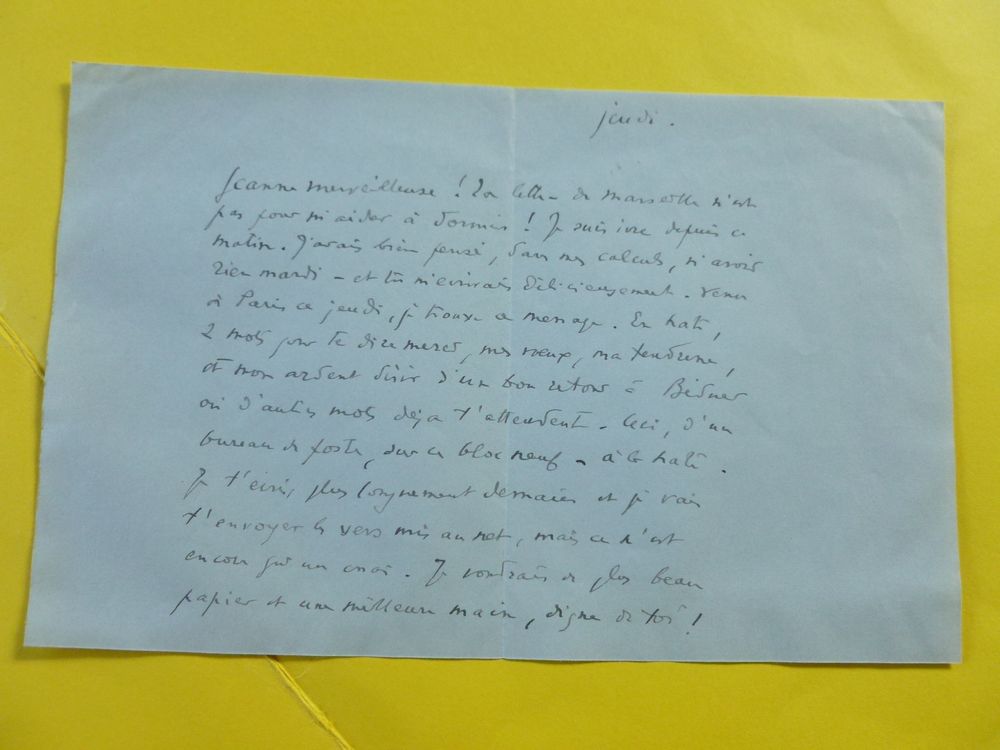 jeudi.
Jeanne merveilleuse ! La lettre de Marseille n'est
pas pour m'aider à dormir ! Je suis ivre depuis ce
matin. J'avais bien pensé, dans mes calculs, n'avoir
rien mardi – et tu m'écrivais délicieusement. Venu
à Paris ce jeudi, je trouve ce message. En hâte,
2 mots pour te dire merci, mes vœux, ma tendresse,
et mon ardent désir d'un bon retour à
où d'autres mots déjà t'attendent. Ceci, d'un
bureau de poste, sur ce bloc neuf – à la hâte.
Je t'écris plus longuement demain et je vais
t'envoyer les vers mis au net, mais ce n'est
encore qu'un essai. Je voudrais de plus beau
papier et une meilleure main, digne de toi !